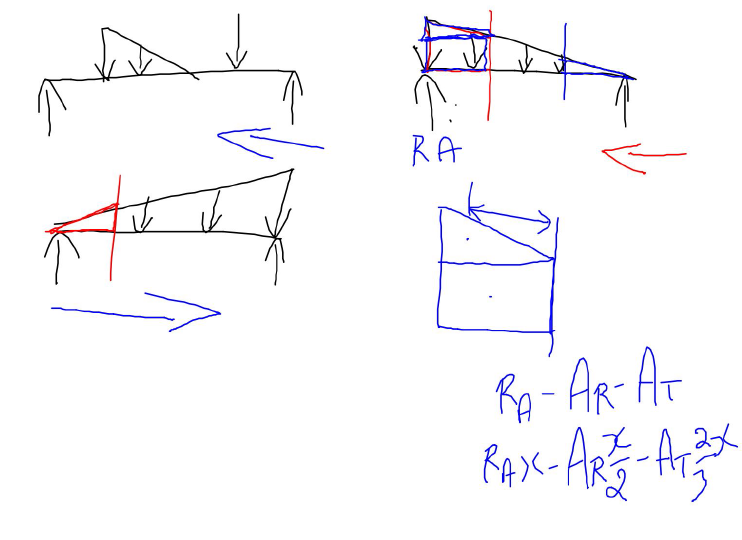 RA
R_A - A_R - A_T
R_A x - A_R x/2 - A_T 2x/3